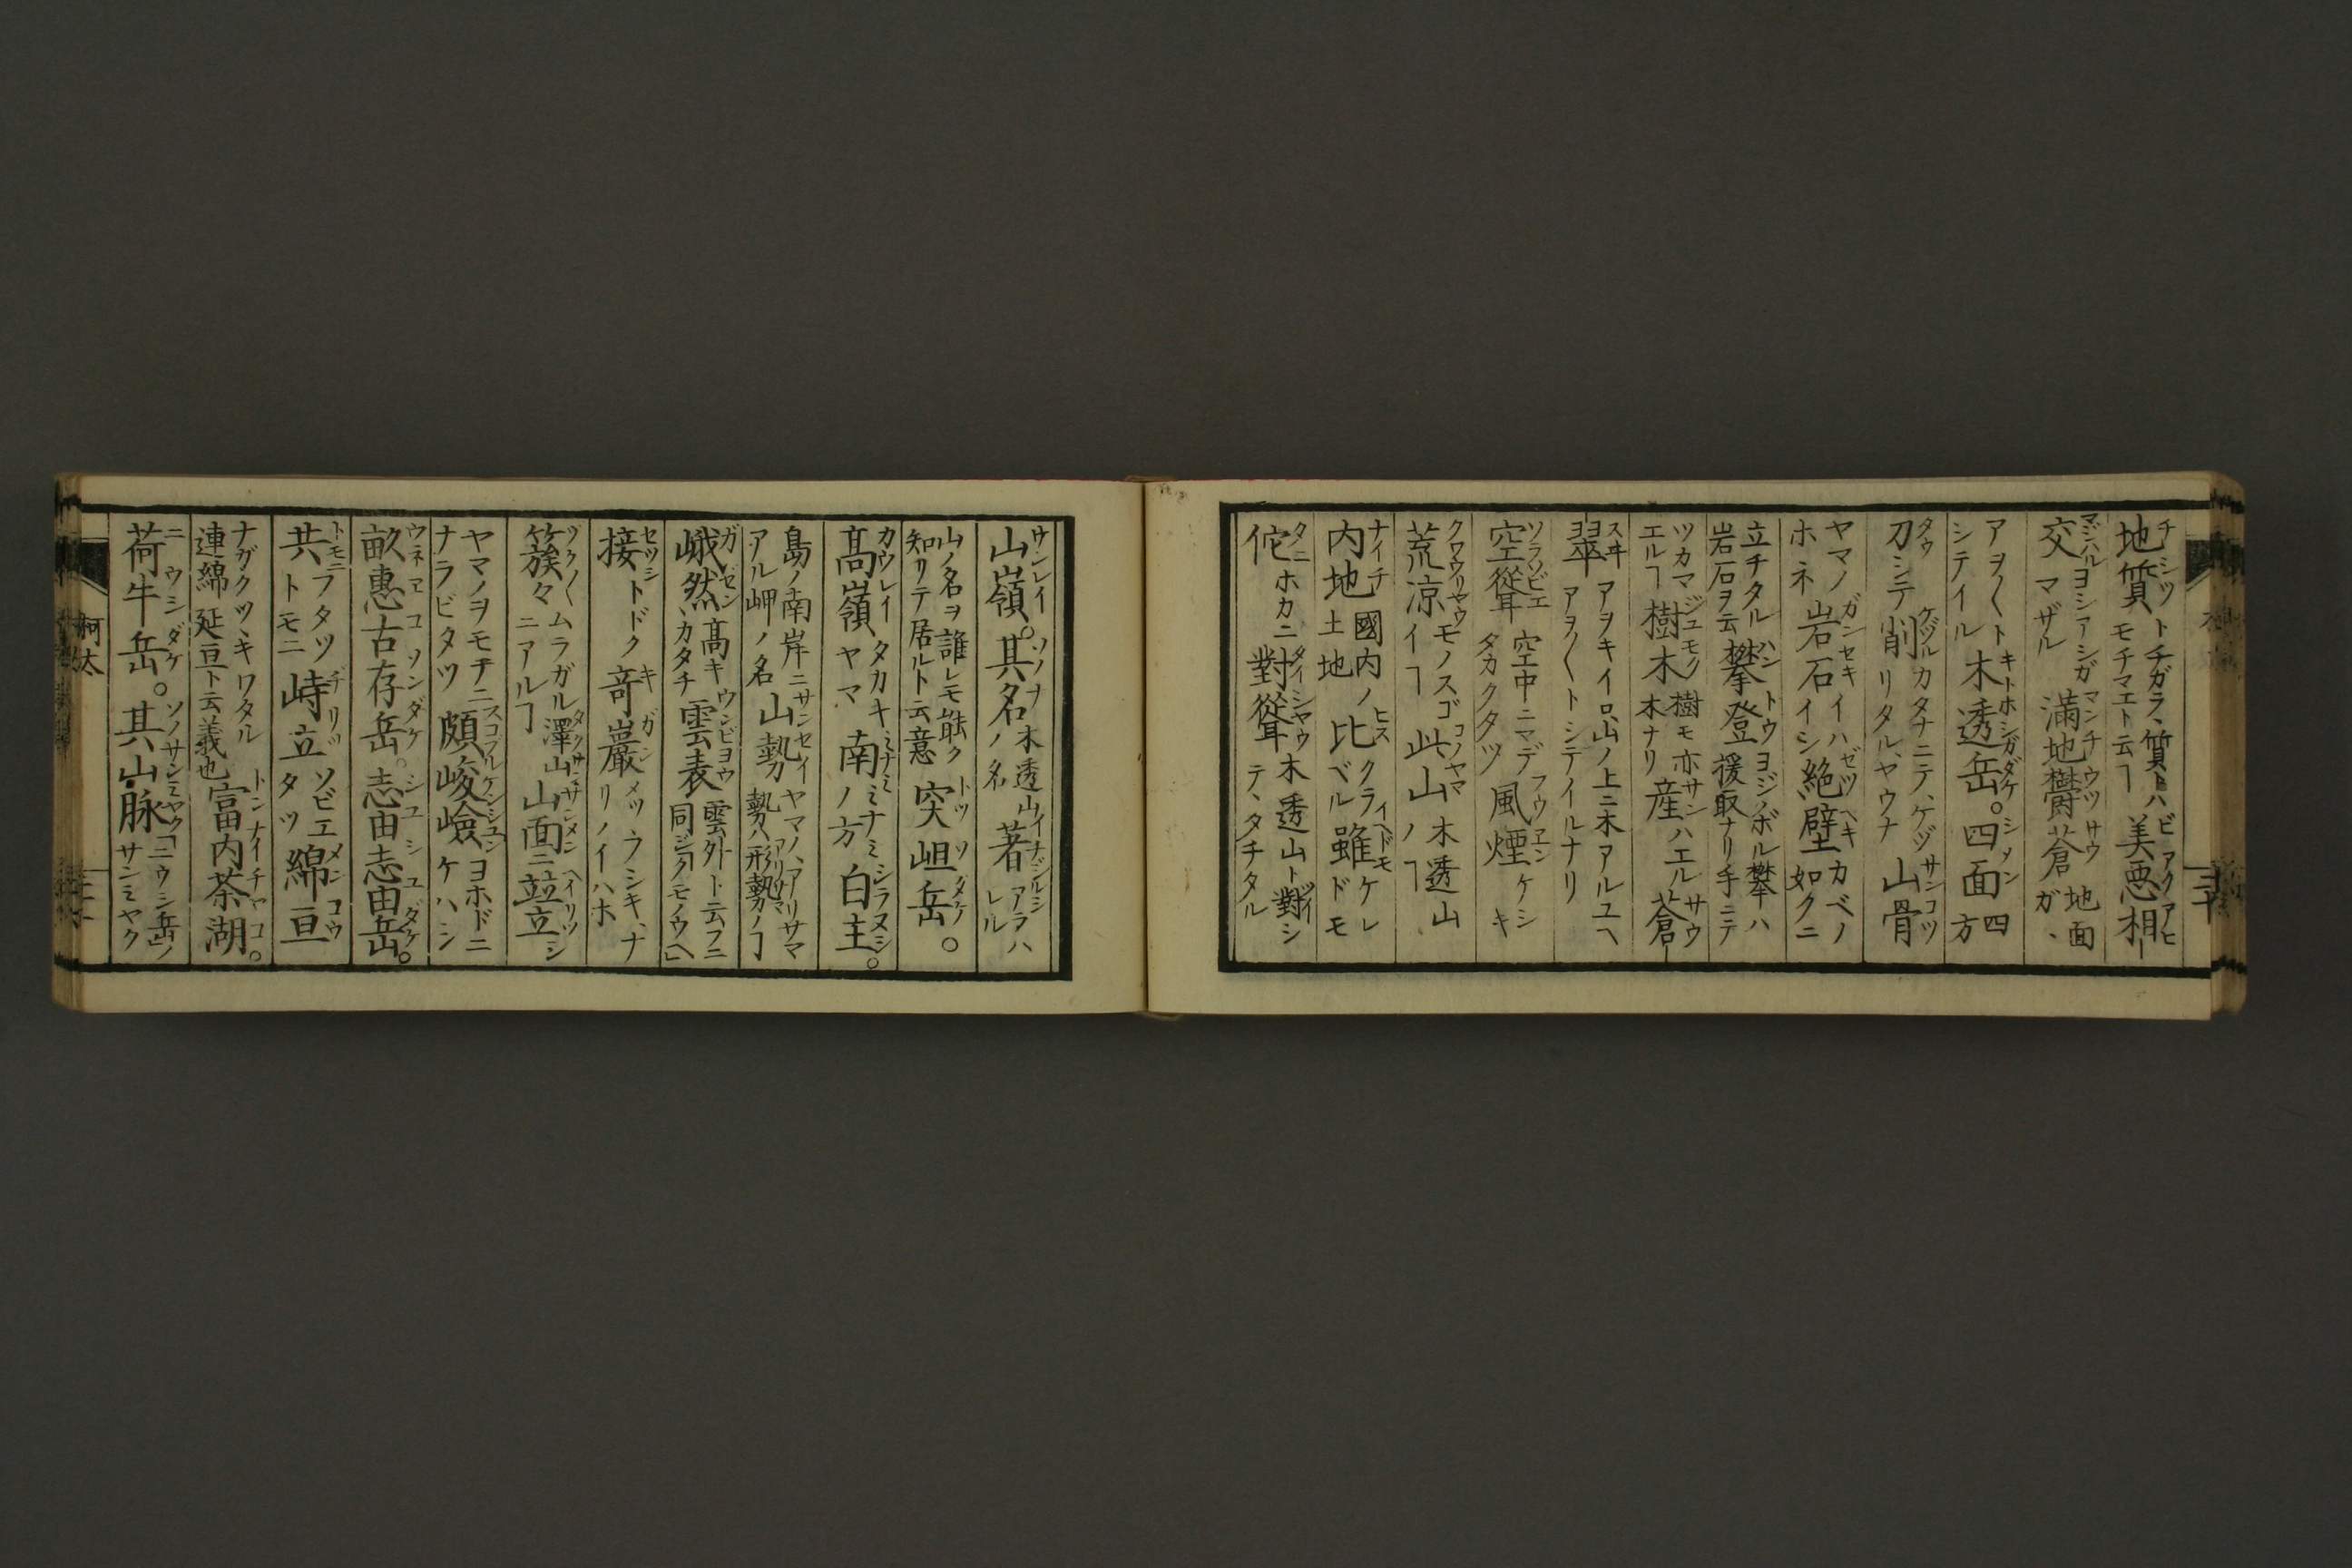 地質トチガラ、質トハモチマエト云ヿ美悪相
交ヨシアシガマザル満地鬱蒼地面ガ、
アヲ〱トシテイル木透岳。四面四方
刀シテ削カタナニテ、ケヅリタル、ヤウナ山骨
ヤマノホネ岩石イハイシ絶壁カベノ如クニ
立チタル岩石ヲ云攀登ヨジノボル攀ハ援取ナリ手ニテ
ツカマエルヿ樹木樹モ亦木ナリ産ハエル蒼
翠アヲキイロ、山ノ上ニ木アルユヘアヲ〱トシテイルナリ
空聳空中ニマデタカクタツ風煙ケシキ
荒凉モノスゴイヿ此山木透山ノヿ
内地國内ノ土地比クラベル雖ケレドモ
佗ホカニ對聳木透山ト對シテ、タチタル
山嶺。其名木透山ノ名著アラハレル
山ノ名ヲ誰レモ能ク知リテ居ルト云意突岨岳。
高嶺タカキヤマ南ミナミノ方白主。
島ノ南岸ニアル岬ノ名山勢ヤマノ、アリサマ勢ハ形勢ノヿ
峨然、高キカタチ雲表雲外ト云フニ同ジ
接トドク奇巖メヅラシキ、ナリノイハホ
簇々ムラガル澤山ニアルヿ山面ニ竝立シ
ヤマノヲモテニナラビタツ頗峻嶮ヨホドニケハシ
畝惠古存岳。志由志由岳。
共フタツトモニ峙立ソビエタツ綿亘
ナガクツヽキワタル連綿延亘ト云義也富内茶湖。
荷牛岳。其山脉ニウシ岳ノサンミヤク
柯太